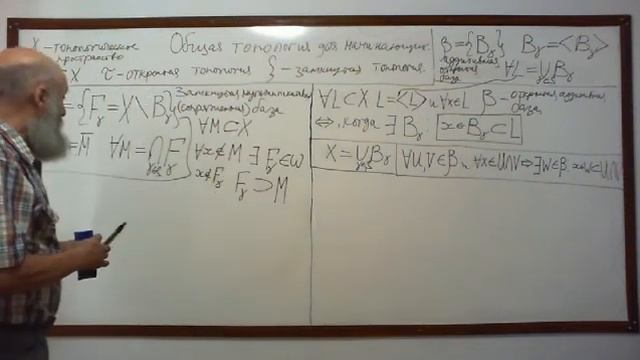 X - топологическое пространство
Общая топология для начинающих.
X τ - открытая топология ξ - замкнутая топология.
β = {B_γ} B_γ = <B_γ>
аддитивная открытая база ∀L = ∪B_γ
{F_γ = X \ B_γ} Замкнутая мультипликативная (сопряжённая) база
= M̄ ∀M = ∩F_γ
∀M ⊂ X
∀x ∉ M ∃ F_γ ∈ ω
x ∉ F_γ F_γ ⊃ M
∀L ⊂ X L = <L> и ∀x ∈ L β - открытая аддит. база,
⇔, когда ∃ B_γ x ∈ B_γ ⊂ L
X = ∪B_γ ∀U,V ∈ β и ∀x ∈ U∩V ⇒ ∃W ∈ β x ∈ W ⊂ U∩V